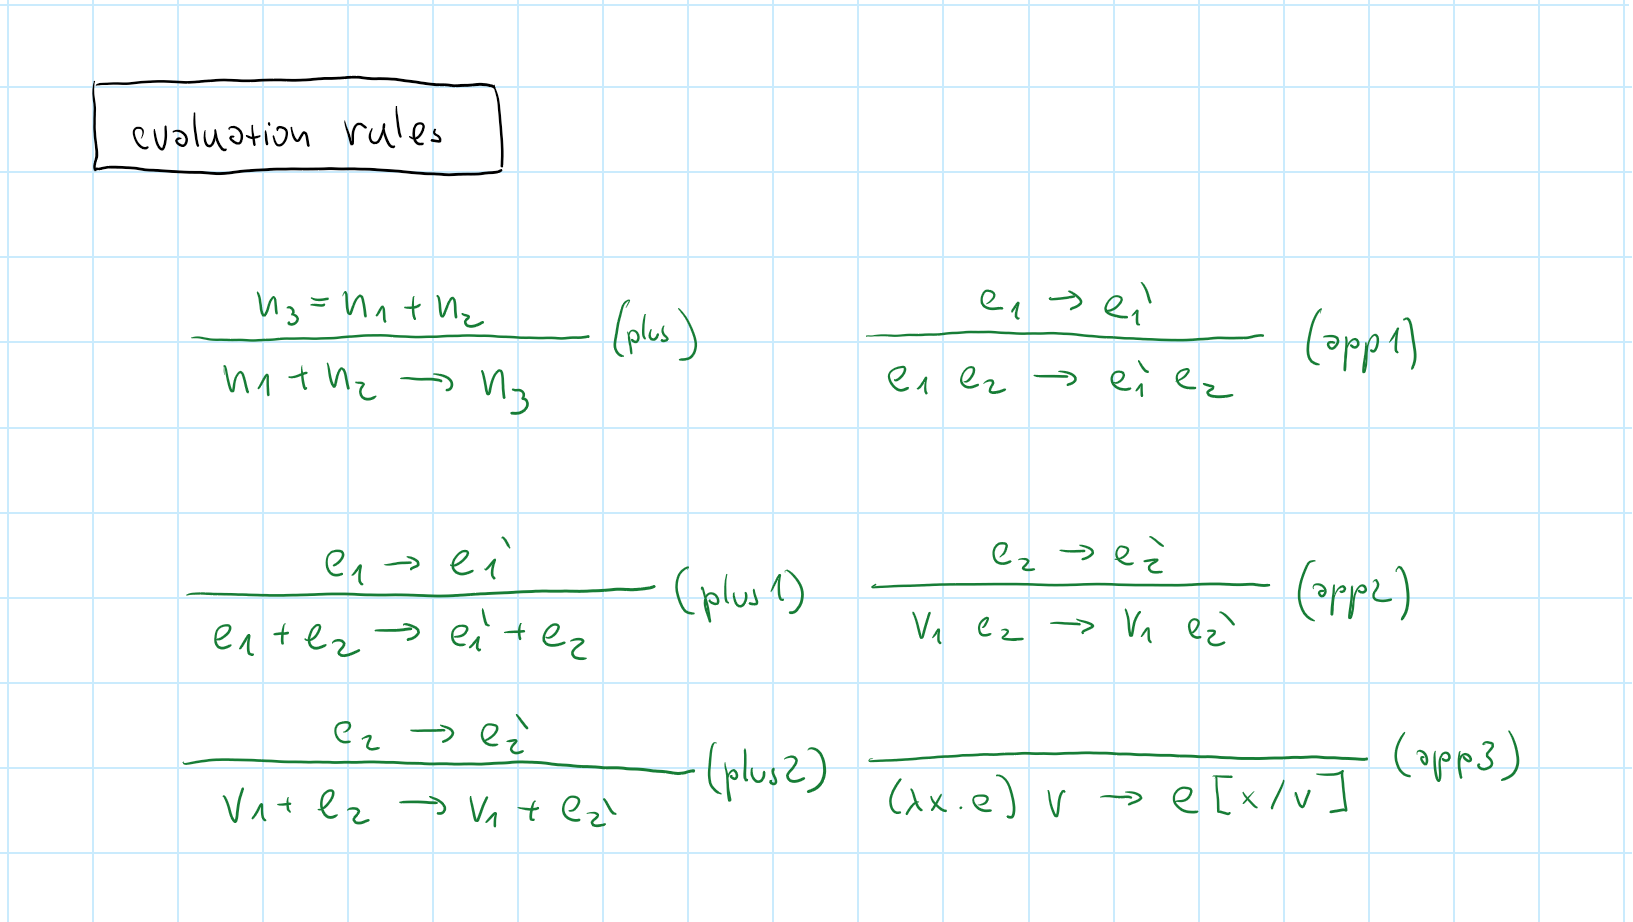 evaluation rules
n₃ = n₁ + n₂
n₁ + n₂ → n₃ (plus)
e₁ → e₁'
e₁ e₂ → e₁' e₂ (app1)
e₁ → e₁'
e₁ + e₂ → e₁' + e₂ (plus1)
e₂ → e₂'
v₁ e₂ → v₁ e₂' (app2)
e₂ → e₂'
v₁ + e₂ → v₁ + e₂' (plus2)
(λx.e) v → e[x/v] (app3)